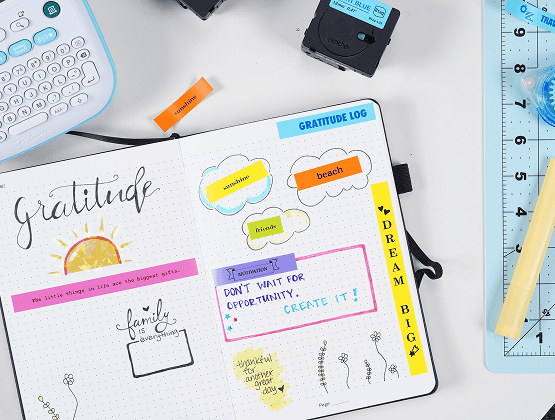 BLUE
brother
sunshine
GRATITUDE LOG
Gratitude
sunshine
beach
friends
The little things in life are the biggest gifts.
family
IS
everything
MOTIVATION
DON'T WAIT FOR
OPPORTUNITY.
CREATE IT!
DREAM BIG
thankful
for
another
great
day
Page:
9
8
7
6
5
4
3
2
1